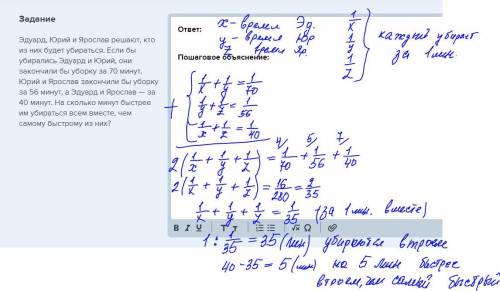 Задание
Эдуард, Юрий и Ярослав решают, кто
из них будет убираться. Если бы
убирались Эдуард и Юрий, они
закончили бы уборку за 70 минут,
Юрий и Ярослав закончили бы уборку
за 56 минут, а Эдуард и Ярослав — за
40 минут. На сколько минут быстрее
им убираться всем вместе, чем
самому быстрому из них?
Ответ:
x - время Эд.
y - время Юр
z время Яр.
1/x
1/y
1/z
каждый убирает
за 1 мин.
Пошаговое объяснение:
+
1/x + 1/y = 1/70
1/y + 1/z = 1/56
1/x + 1/z = 1/40
4/ 5/ 7/
2(1/x + 1/y + 1/z) = 1/70 + 1/56 + 1/40
2(1/x + 1/y + 1/z) = 16/280 = 2/35
1/x + 1/y + 1/z = 1/35 (за 1 мин. вместе)
B I U T T
1 : 1/35 = 35 (мин) убираются втроем
40 - 35 = 5 (мин) на 5 мин быстрее
втроем, чем самый быстрый